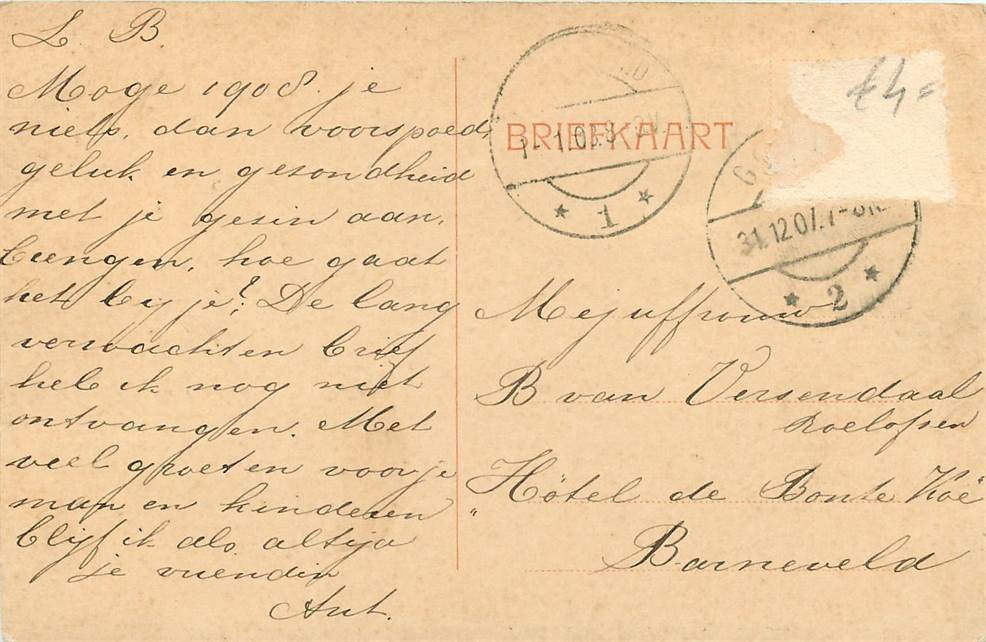 L. B.
Moge 1908 je
niets dan voorspoed,
geluk en gesondheid
met je gesin aan,
brengen, hoe gaat
het by je? De lang
verwachten brief
heb ik nog niet
ontvangen. Met
veel groeten voor je
man en kinderen
blijf ik als altijd
je vriendin
Ant.
BRIEFKAART
1-1.08.8
1
€4=
31.12.07.7-
2
Mejuffrouw
B van Versendaal
Roelofsen
"Hôtel de Bonte Koe"
Barneveld